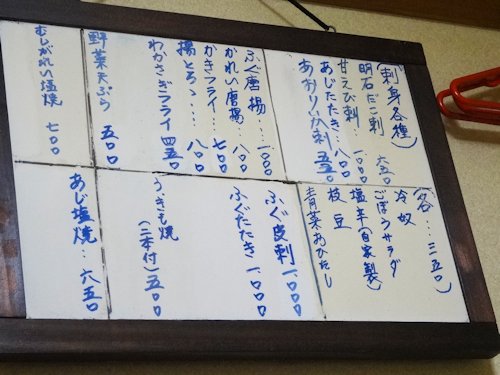 (刺身各種)
明石だこ刺 六五〇
甘えび刺…
あじたたき…八〇〇
あおりいか刺 五五〇
ふぐ唐揚…一〇〇〇
かれい唐揚…八〇〇
かきフライ…七〇〇
揚とろ…八〇〇
わかさぎフライ 四五〇
野菜天ぷら 五〇〇
むしがれい塩焼 七〇〇
(各…三五〇)
冷奴
ごぼうサラダ
塩辛(自家製)
枝豆
青菜おひたし
ふぐ皮刺 一〇〇〇
ふぐたたき 一〇〇〇
うきも焼
(二本付)五〇〇
あじ塩焼…六五〇